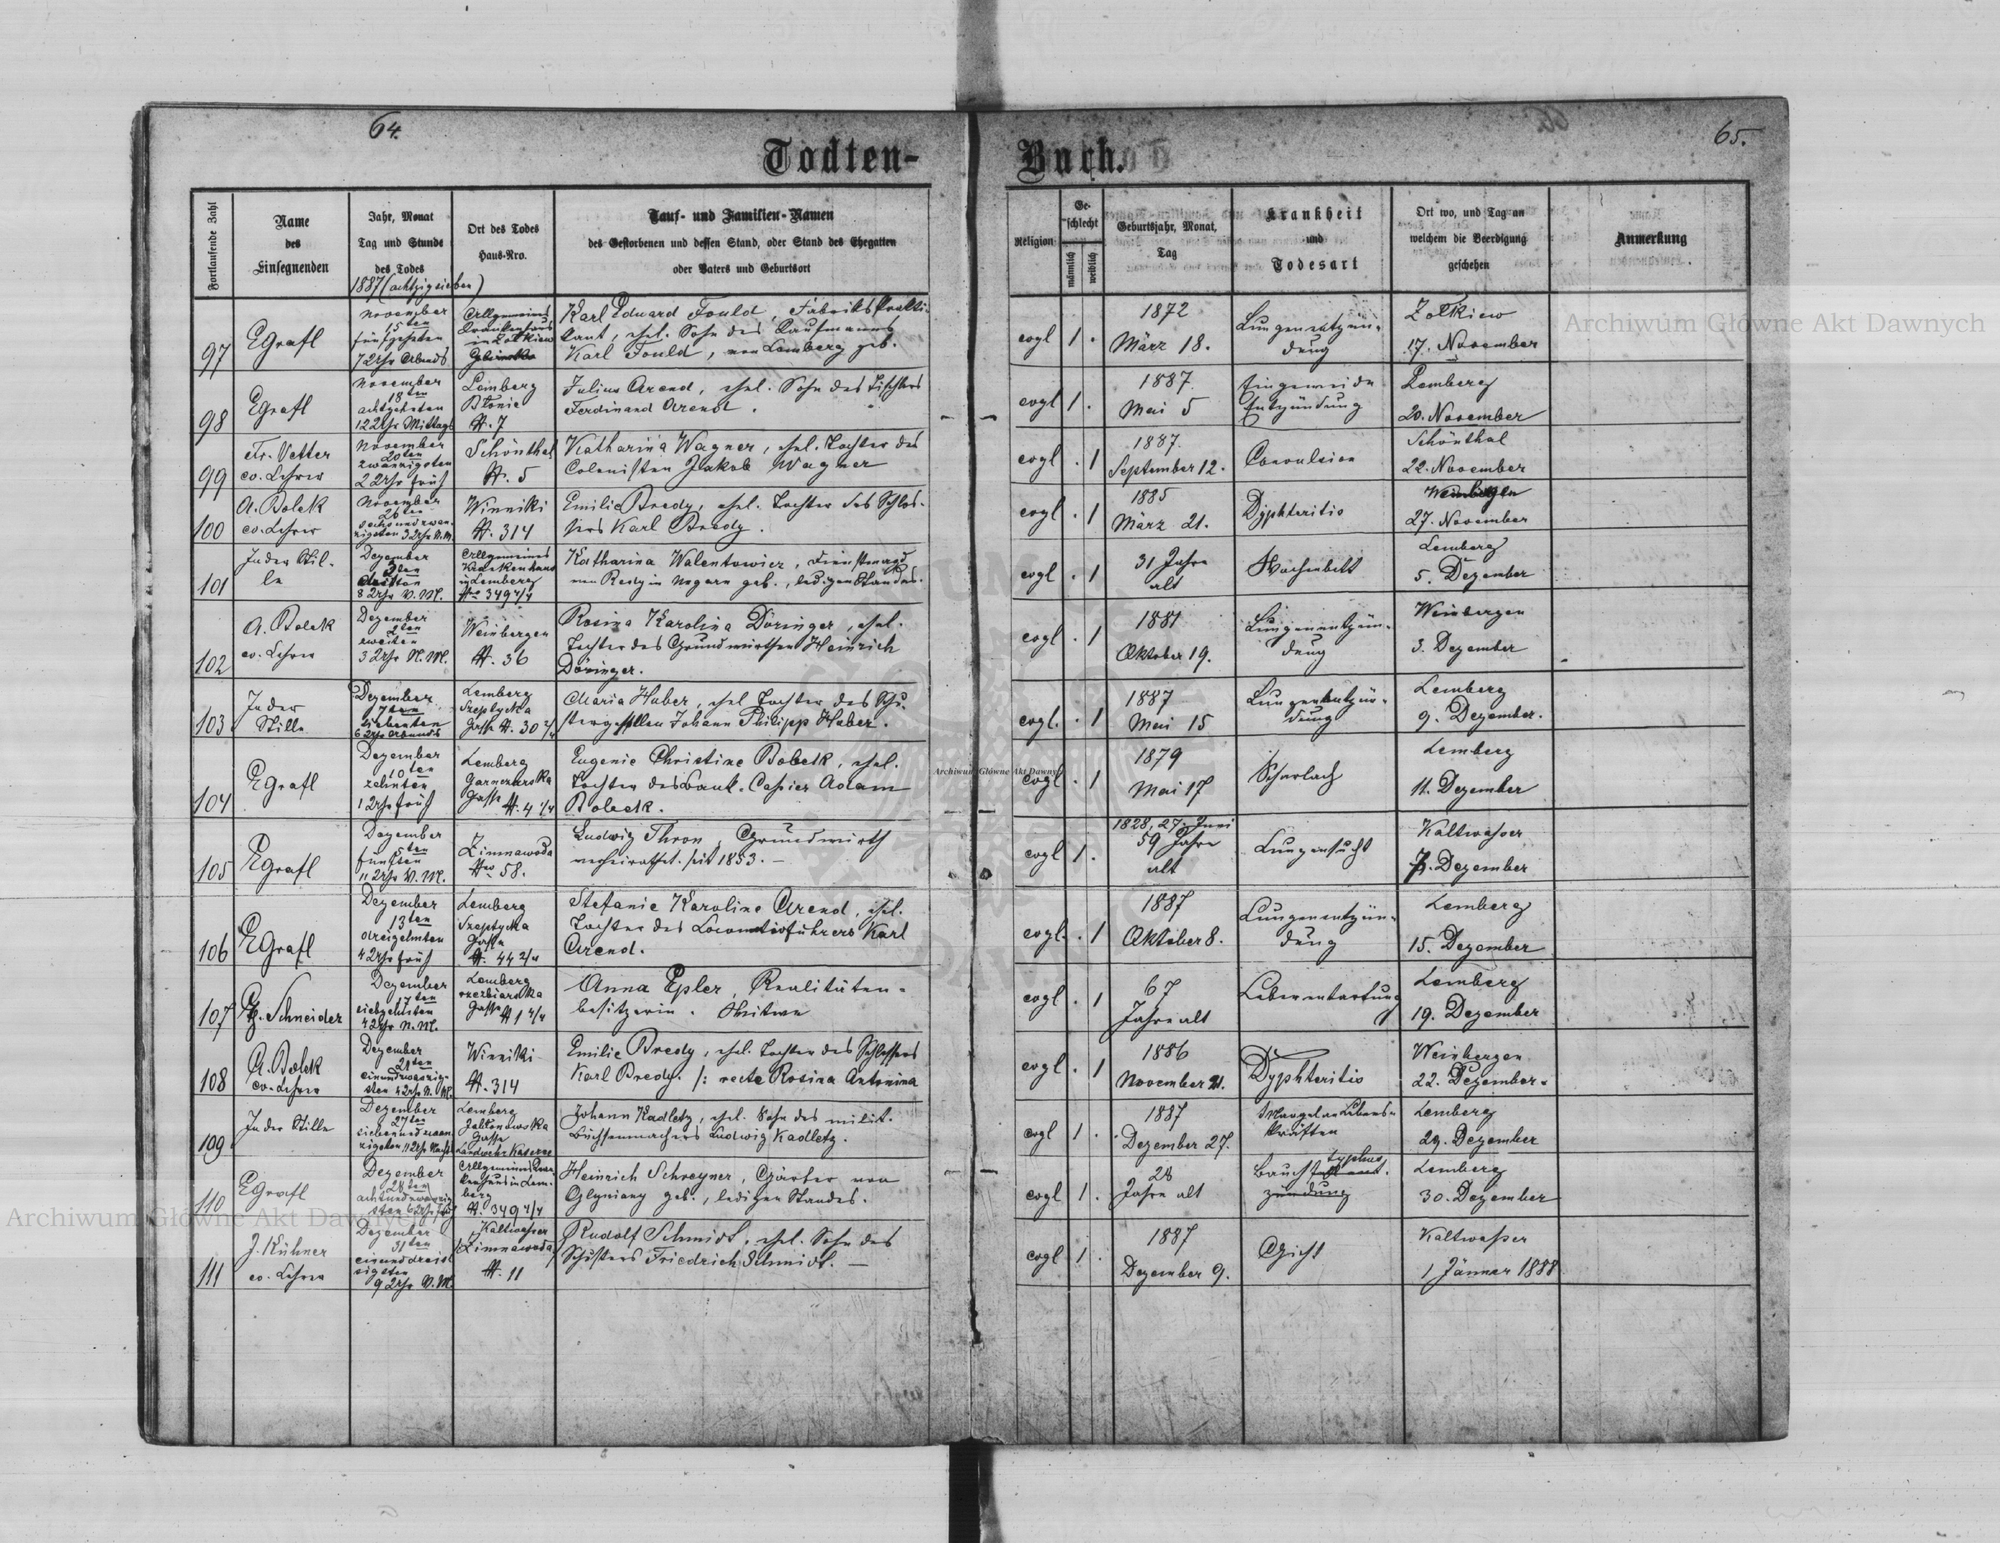 64.
65.
Todten-
Buch.
Fortlaufende Zahl
Name
des
Einsegnenden
Jahr, Monat
Tag und Stunde
des Todes
1887 (achtzigsieben)
Ort des Todes
Haus-Nro.
Tauf- und Familien-Namen
des Gestorbenen und dessen Stand, oder Stand des Ehegatten
oder Vaters und Geburtsort
Religion
Ge-
schlecht
männlich
weiblich
Geburtsjahr, Monat,
Tag
Krankheit
und
Todesart
Ort wo, und Tag an
welchem die Beerdigung
geschehen
Anmerkung
97
EGrafl
November
15ten
fünfzehnten
7 Uhr Abends
Allgemeines
Krankenhaus
in Zolkiew
Karl Eduard Fould, Fabriksprakti-
kant, ehel. Sohn des Kaufmanns
Karl Fould, von Lemberg geb.
evgl 1 .
1872
März 18.
Lungenentzün-
dung
Zolkiew
17. November
98
EGrafl
November
18ten
achtzehnten
12 Uhr Mittags
Lemberg
Błonie
N. 7
Julius Arend, ehel. Sohn des Tischlers
Ferdinand Arend.
evgl 1 .
1887.
Mai 5
Eingeweide
Entzündung
Lemberg
20. November
99
Fr. Vetter
ev. Lehrer
November
20ten
zwanzigsten
2 Uhr früh
Schönthal
N. 5
Katharina Wagner, ehel. Tochter des
Colonisten Jakob Wagner
evgl . 1
1887
September 12.
Convulsion
Schönthal
22. November
100
A. Bolek
ev. Lehrer
November
26ten
sechsundzwan-
zigsten 3 Uhr N.M.
Winniki
N. 314
Emilie Bredy, ehel. Tochter des Schlos-
sers Karl Bredy.
evgl . 1
1885
März 21.
Dyphteritis
Weinbergen
27. November
101
In der Stil-
le
Dezember
3ten
dritten
8 Uhr V.M.
Allgemeines
Krankenhaus
in Lemberg
Nro 349 4/4
Katharina Walentowicz, Dienstmagd
von in Ungarn geb., ledigen Standes.
evgl . 1
31 Jahre
alt
Wochenbett
Lemberg
5. Dezember
102
A. Bolek
ev. Lehrer
Dezember
2ten
zweiten
3 Uhr N.M.
Weinbergen
N. 36
Rosina Karolina Döringer, ehel.
Tochter des Grundwirthen Heinrich
Döringer.
evgl . 1
1881
Oktober 19.
Lungenentzün-
dung
Weinbergen
3. Dezember
103
In der
Stille
Dezember
7ten
siebenten
6 Uhr Abends
Lemberg
Szeptycka
Gasse N. 30 2/4
Maria Huber, ehel. Tochter des Schu-
stergesellen Johann Philipp Huber.
evgl. . 1
1887
Mai 15
Lungenentzün-
dung
Lemberg
9. Dezember.
104
EGrafl
Dezember
10ten
zehnten
1 Uhr früh
Lemberg
Garncarska
Gasse N. 4 1/4
Eugenie Christine Bobek, ehel.
Tochter des Bank-Cassiers Adam
Bobek.
evgl . 1
1879
Mai 17
Scharlach
Lemberg
11. Dezember
105
EGrafl
Dezember
5ten
fünften
11 Uhr V.M.
Zimnawoda
Nro 58.
Ludwig Thron, Grundwirth
verheirathet seit 1853. —
evgl 1 .
1828, 27. Juni
59 Jahre
alt
Lungensucht
Kaltwasser
7. Dezember
106
EGrafl
Dezember
13ten
dreizehnten
4 Uhr früh
Lemberg
Szeptycka
Gasse
N. 44 2/4
Stefanie Karoline Arend, ehel.
Tochter des Locomotivführers Karl
Arend.
evgl. . 1
1887
Oktober 8.
Lungenentzün-
dung
Lemberg
15. Dezember
107
Schneider
Dezember
17ten
siebzehnten
4 Uhr N.M.
Lemberg
Gasse
N 1 4/4
Anna Epler, Realitäten-
besitzerin. Witwe
evgl . 1
67
Jahre alt
Leberentartung
Lemberg
19. Dezember
108
A. Bolek
ev. Lehrer
Dezember
21ten
einundzwanzig-
sten 4 Uhr N.M.
Winniki
N. 314
Emilie Bredy, ehel. Tochter des Schlossers
Karl Bredy. /: recte Rosina Antonina
evgl . 1
1886
November 21.
Dyphteritis
Weinbergen
22. Dezember.
109
In der Stille
Dezember
27ten
siebenundzwan-
zigsten 11 Uhr Nachts
Lemberg
Jabłonowska
Gasse
Landwehr Kaserne
Johann Kadletz, ehel. Sohn des milit.
Büchsenmachers Ludwig Kadletz.
evgl 1 .
1887
Dezember 27.
Mangel an Lebens-
kräften
Lemberg
29. Dezember
110
EGrafl
Dezember
28ten
achtundzwanzig-
sten 6 Uhr früh
Allgemeines Kran-
kenhaus in Lem-
berg
N. 349 4/4
Heinrich Schreyner, Gärtner von
Gliniany geb., ledigen Standes.
evgl 1 .
28
Jahre alt
Bauchtyphus.
zündung
Lemberg
30. Dezember
111
J. Kühner
ev. Lehrer
Dezember
31ten
einunddreis-
sigsten
9 Uhr V.M.
Kaltwasser
/Zimnawoda/
N. 11
Rudolf Schmidt, ehel. Sohn des
Schusters Friedrich Schmidt. —
evgl 1 .
1887
Dezember 9.
Gicht
Kaltwasser
1 Jänner 1888
Archiwum Główne Akt Dawnych
Archiwum Główne Akt Dawnych
Archiwum Główne Akt Dawnych